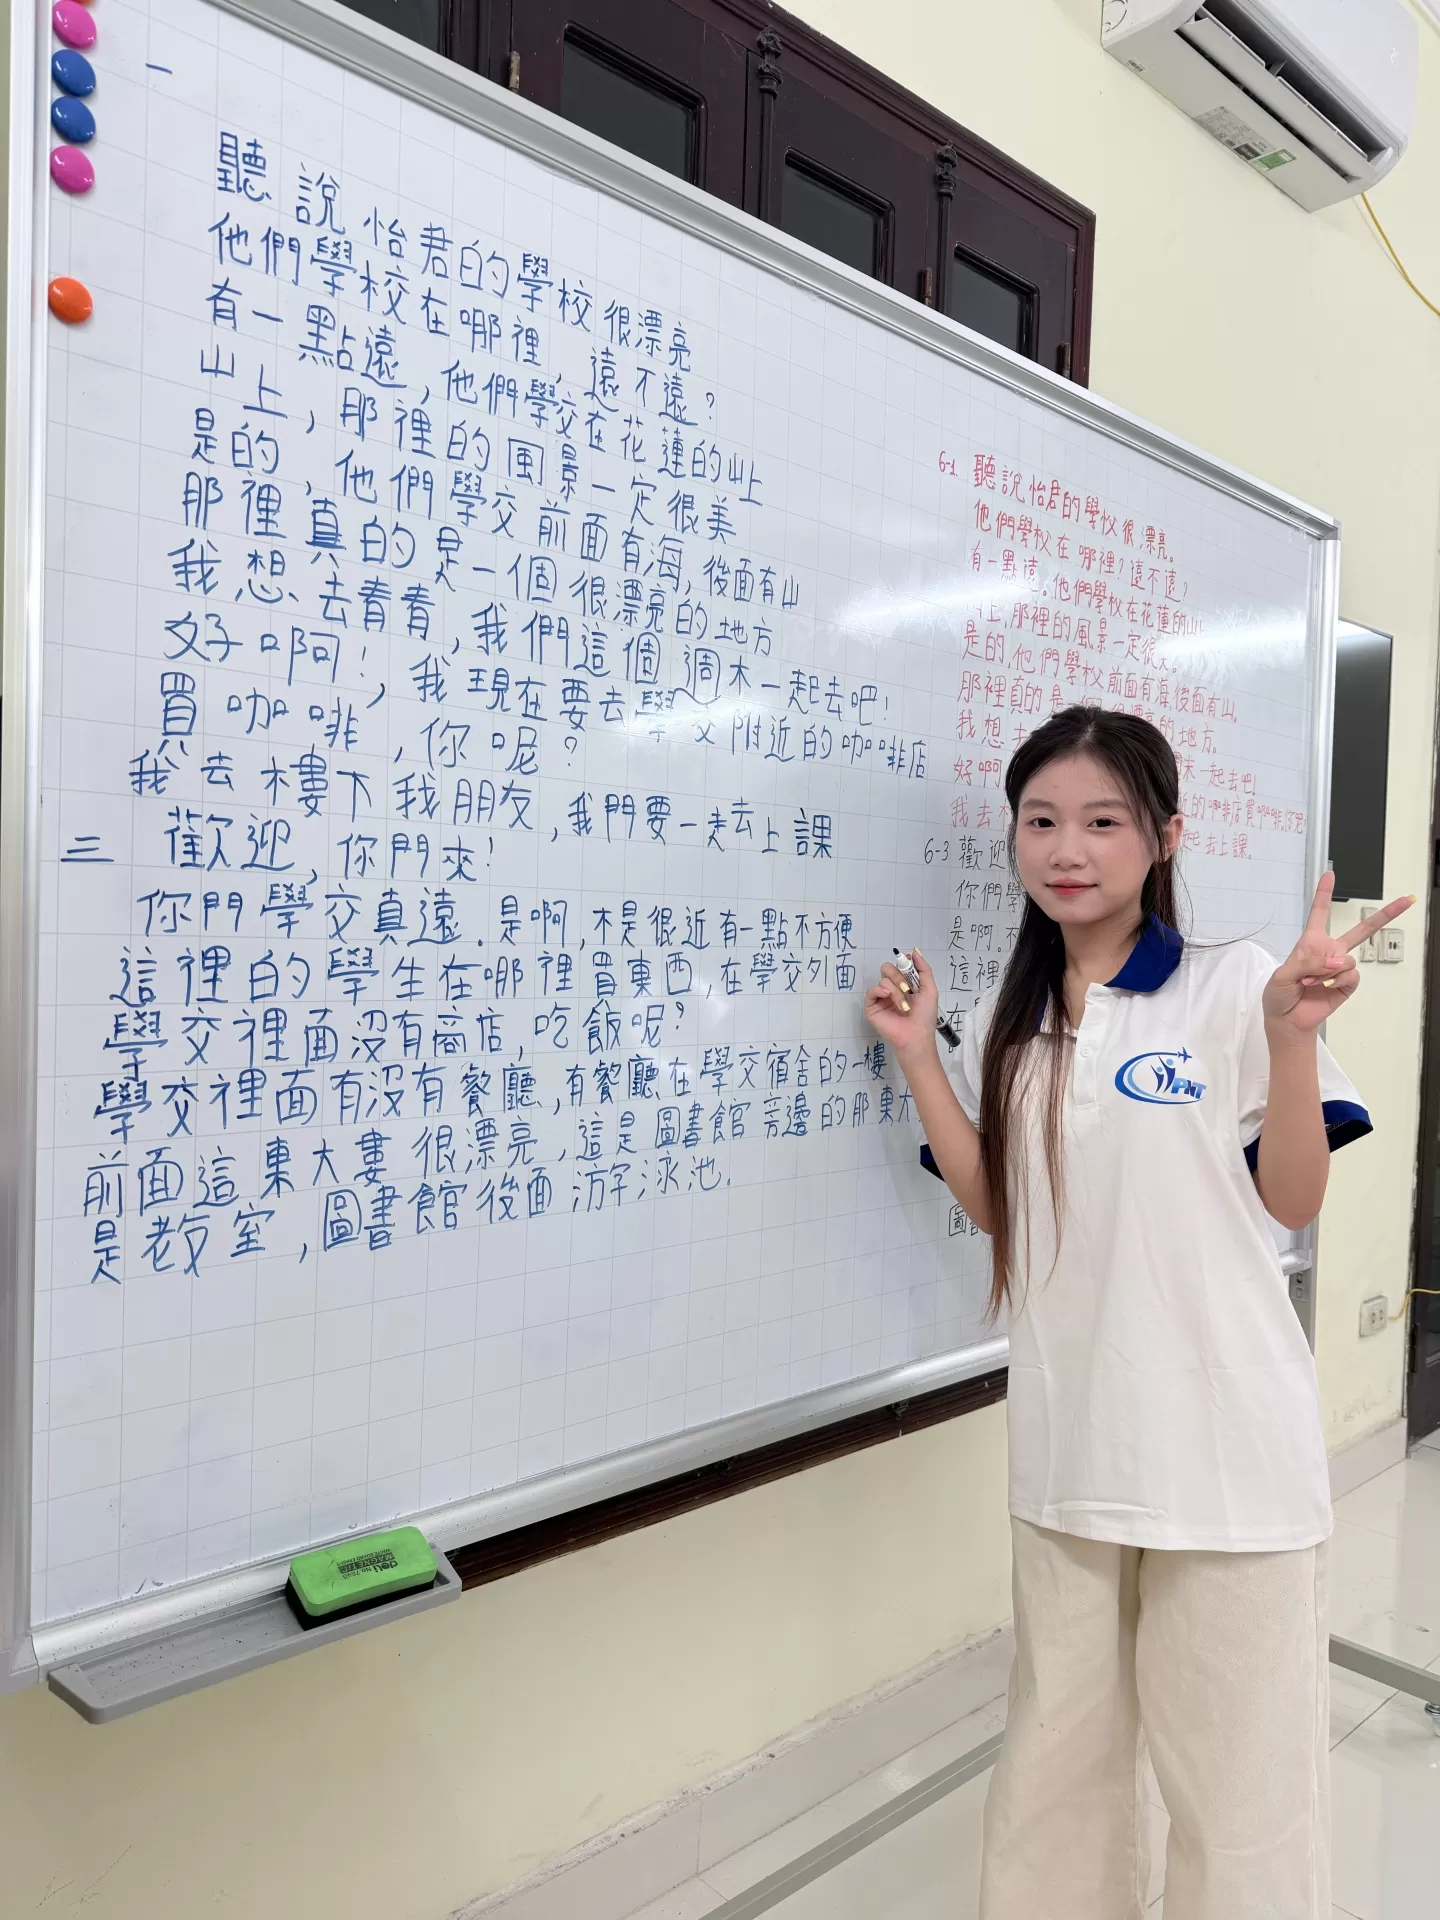 一
聽說怡君的學校很漂亮
他們學校在哪裡，遠不遠？
有一點遠，他們學交在花蓮的山上
山上，那裡的風景一定很美
是的，他們學交前面有海，後面有山
那裡真的是一個很漂亮的地方
我想去看看，我們這個週木一起去吧！
好啊！，我現在要去學交附近的咖啡店
買咖啡，你呢？
我去樓下我朋友，我門要一走去上課
三 歡迎，你門來！
你門學交真遠．是啊，木是很近有一點不方便
這裡的學生在哪裡買東西，在學交外面
學交裡面沒有商店，吃飯呢？
學交裡面有沒有餐廳，有餐廳在學交宿舍的一樓
前面這東大婁很漂亮，這是圖書館旁邊的那東大
是老室，圖書館後面游泳池．
6-1 聽說怡君的學校很漂亮。
他們學校在哪裡？遠不遠？
有一點遠。他們學校在花蓮的山上
上，那裡的風景一定很美。
是的，他們學校前面有海，後面有山。
那裡真的是 很漂亮的地方。
我想去 末一起去吧！
好啊 近的咖啡店買咖啡。你呢？
我去 起去上課。
6-3 歡迎
你們學
是啊。不
這裡
在
圖書
PNT
deli No.7840
MAGNETIC
WHITE BOARD ERASER